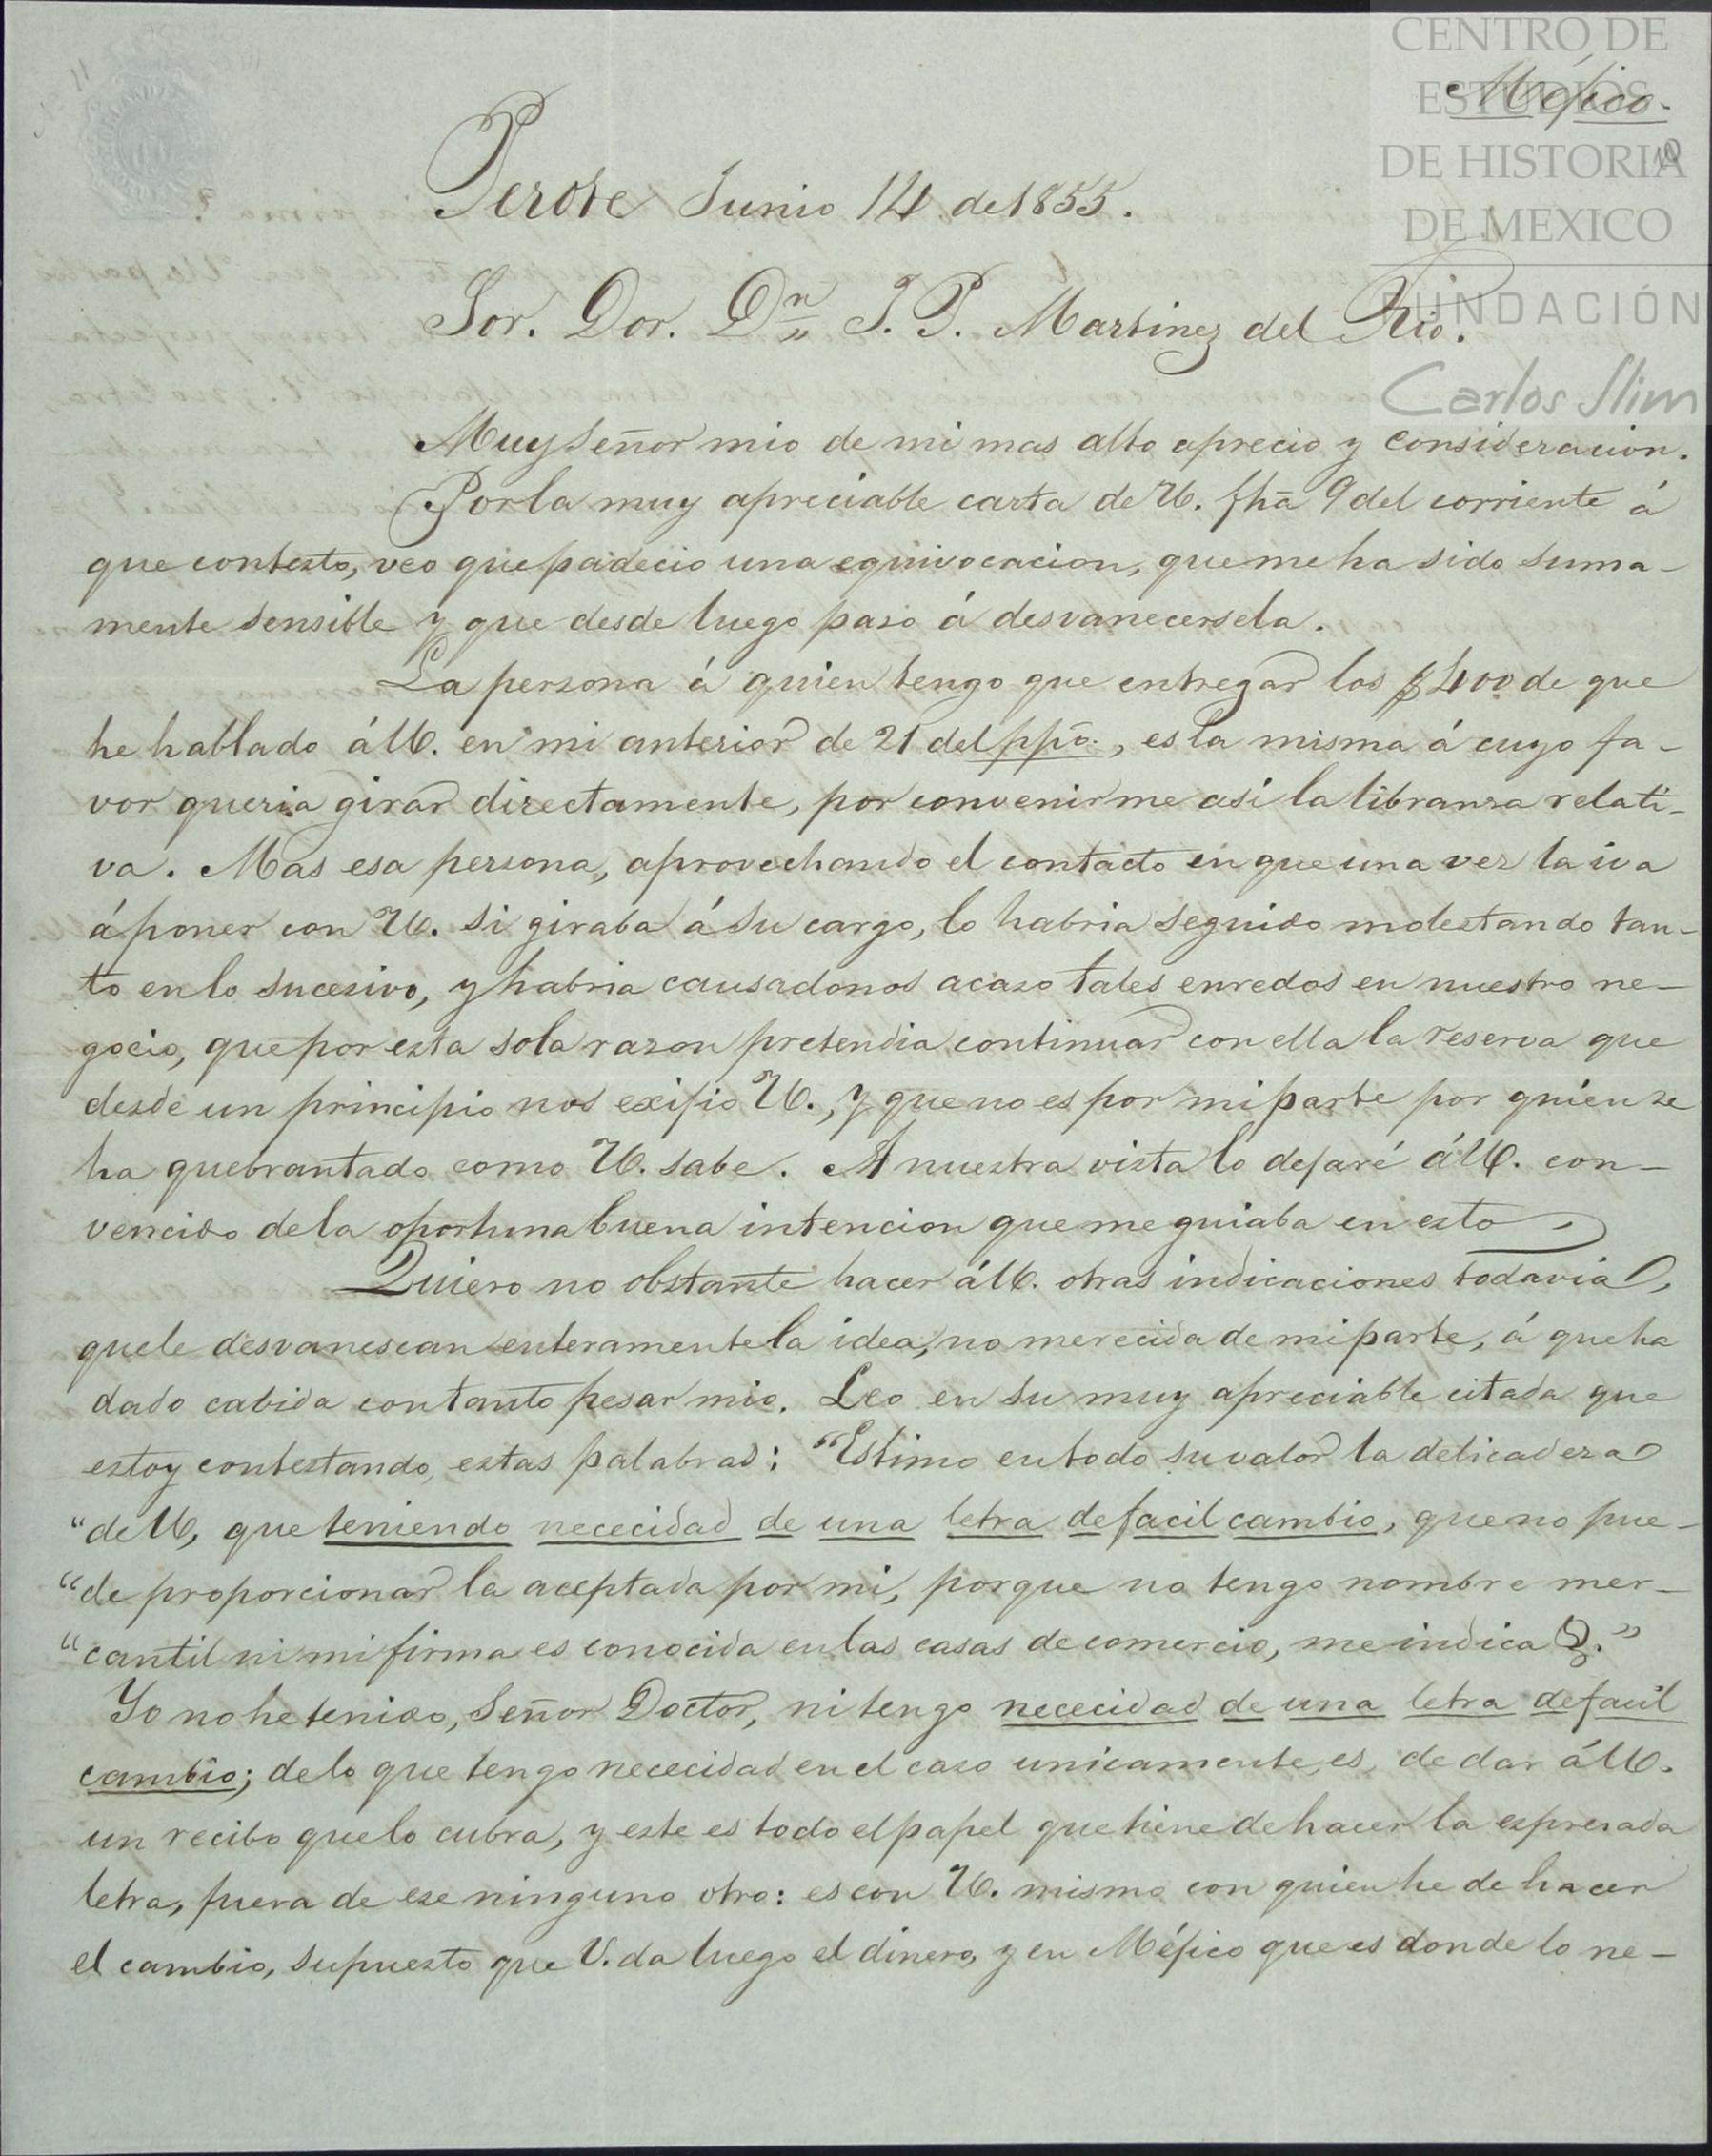 CENTRO DE
ESTUDIOS
DE HISTORIA
DE MEXICO
FUNDACIÓN
Carlos Slim
Méjico.
10
Perote Junio 14 de 1855.
Sor. Dor. Dn. J. P. Martinez del Rio.
Muy Señor mio de mi mas alto aprecio y consideracion.
Por la muy apreciable carta de U. fhã 9 del corriente á
que contesto, veo que padecio una equivocacion, que me ha sido suma-
mente sensible y que desde luego paso á desvanecersela.
La persona á quien tengo que entregar los $400 de que
he hablado á U. en mi anterior de 21 del ppõ., es la misma á cuyo fa-
vor queria girar directamente, por convenirme asi la libranza relati-
va. Mas esa persona, aprovechando el contacto en que una vez la iva
á poner con U. si giraba á su cargo, lo habria seguido molestando tan-
to en lo sucesivo, y habria causadonos acaso tales enredos en nuestro ne-
gocio, que por esta sola razon pretendia continuar con ella la reserva que
desde un principio nos exijio U., y que no es por mi parte por quien se
ha quebrantado como U. sabe. A nuestra vista lo dejaré á U. con-
vencido de la oportuna buena intencion que me guiaba en esto.
Quiero no obstante hacer á U. otras indicaciones todavia,
que le desvanescan enteramente la idea, no merecida de mi parte, á que ha
dado cabida con tanto pesar mio. Leo en su muy apreciable citada que
estoy contestando, estas palabras: "Estimo en todo su valor la delicadeza
"de U, que teniendo nececidad de una letra de facil cambio, que no pue-
"de proporcionar la aceptada por mi, porque no tengo nombre mer-
"cantil ni mi firma es conocida en las casas de comercio, me indica &."
Yo no he tenido, Señor Doctor, ni tengo nececidad de una letra de facil
cambio; de lo que tengo nececidad en el caso unicamente, es, de dar á U.
un recibo que lo cubra, y este es todo el papel que tiene de hacer la espresada
letra, fuera de ese ninguno otro: es con U. mismo con quien he de hacer
el cambio, supuesto que U. da luego el dinero, y en Méjico que es donde lo ne-